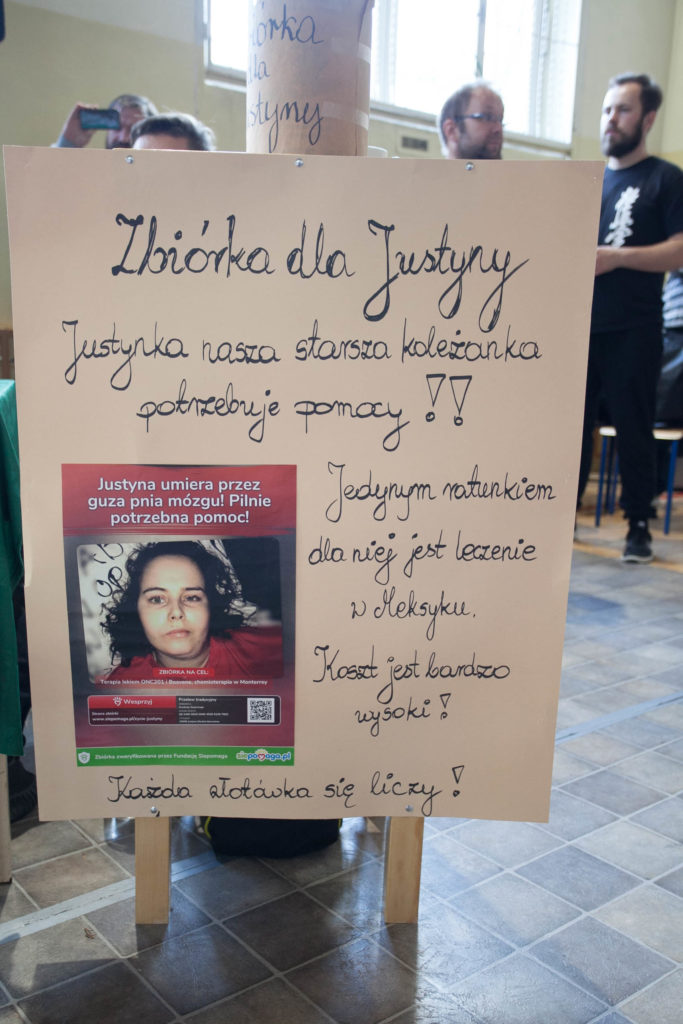 Zbiórka
dla
Justyny
Zbiórka dla Justyny
Justynka nasza starsza koleżanka
potrzebuje pomocy !!
Justyna umiera przez
guza pnia mózgu! Pilnie
potrzebna pomoc!
ZBIÓRKA NA CEL:
Terapia lekiem ONC201 i Avastin, chemioterapia w Monterrey
Wesprzyj
Strona zbiórki
www.siepomaga.pl/zycie-justyny
Przelew tradycyjny
Zbiórka zweryfikowana przez Fundację Siepomaga
siepomaga.pl
Jedynym ratunkiem
dla niej jest leczenie
w Meksyku.
Koszt jest bardzo
wysoki!
Każda złotówka się liczy!